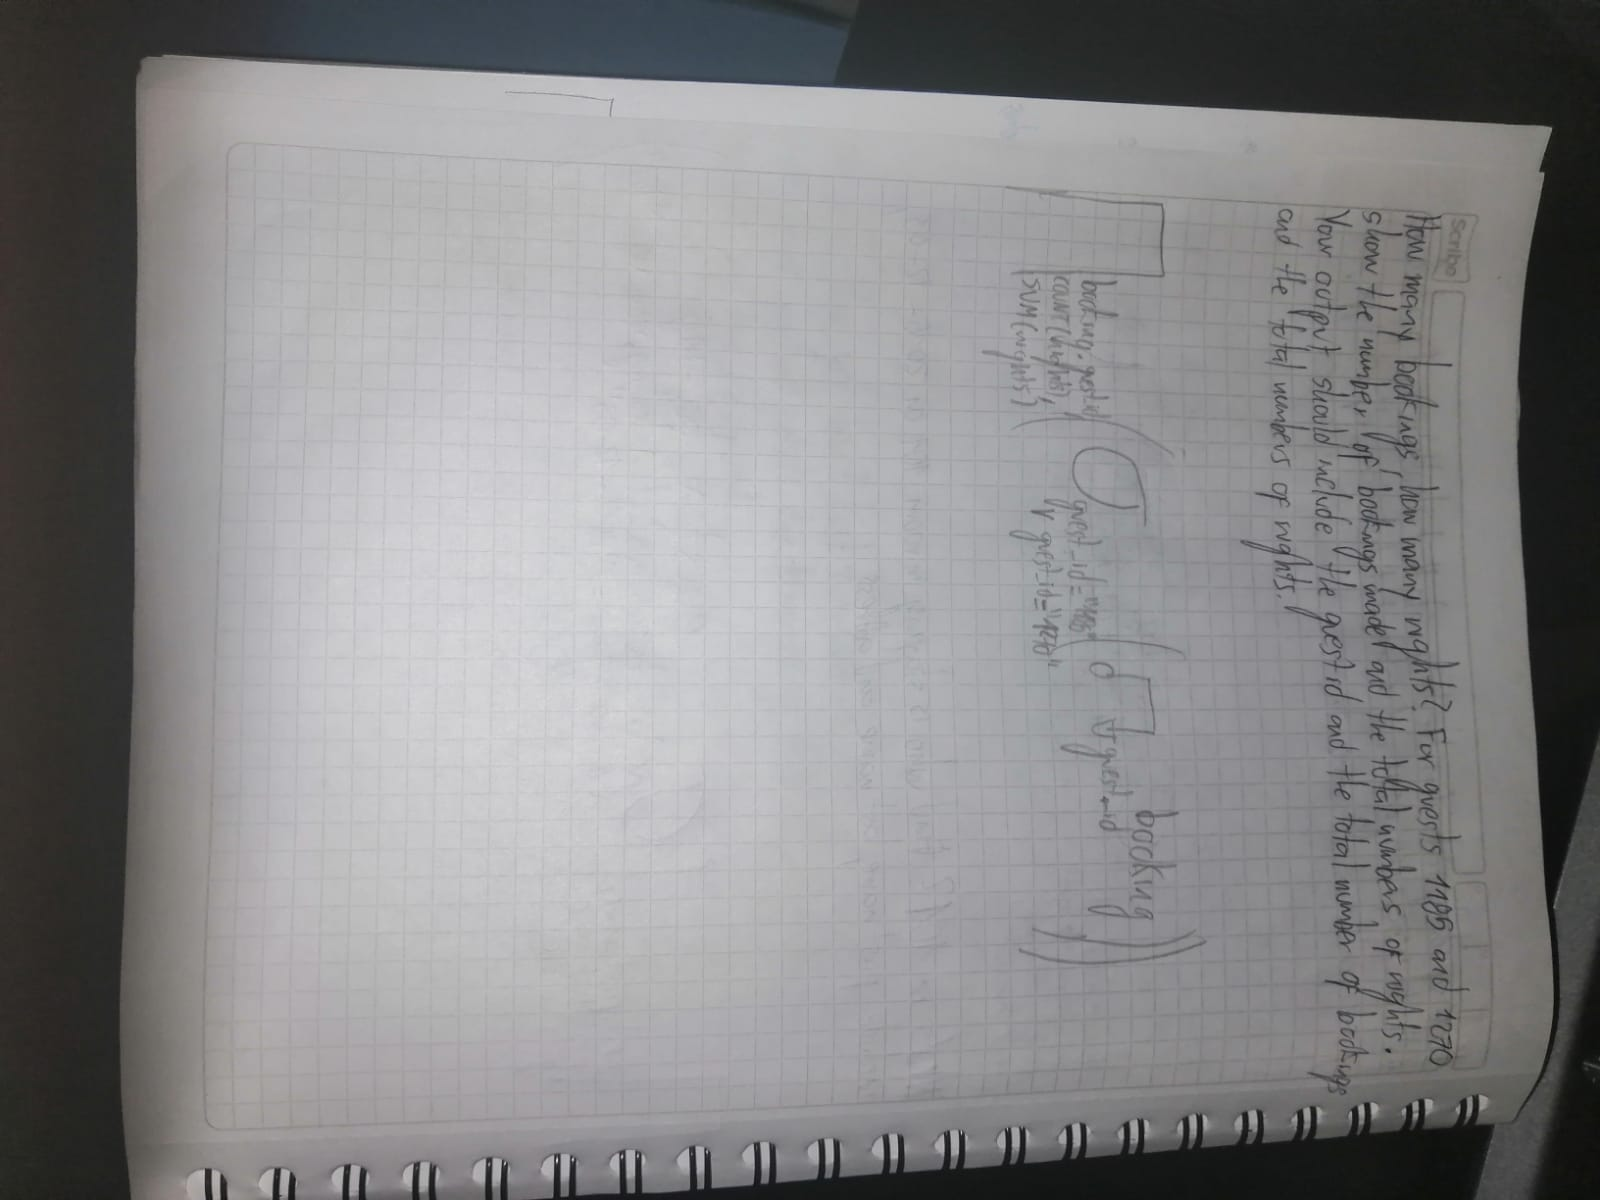 Scribe
How many bookings, how many nights? For guests 1185 and 1270
show the number of bookings made and the total numbers of nights.
Your output should include the guest id and the total number of bookings
and the total numbers of nights.
booking.guest_id
COUNT(nights),
SUM(nights)
guest_id="1185"
∨ guest_id="1270"
∀ guest_id
booking